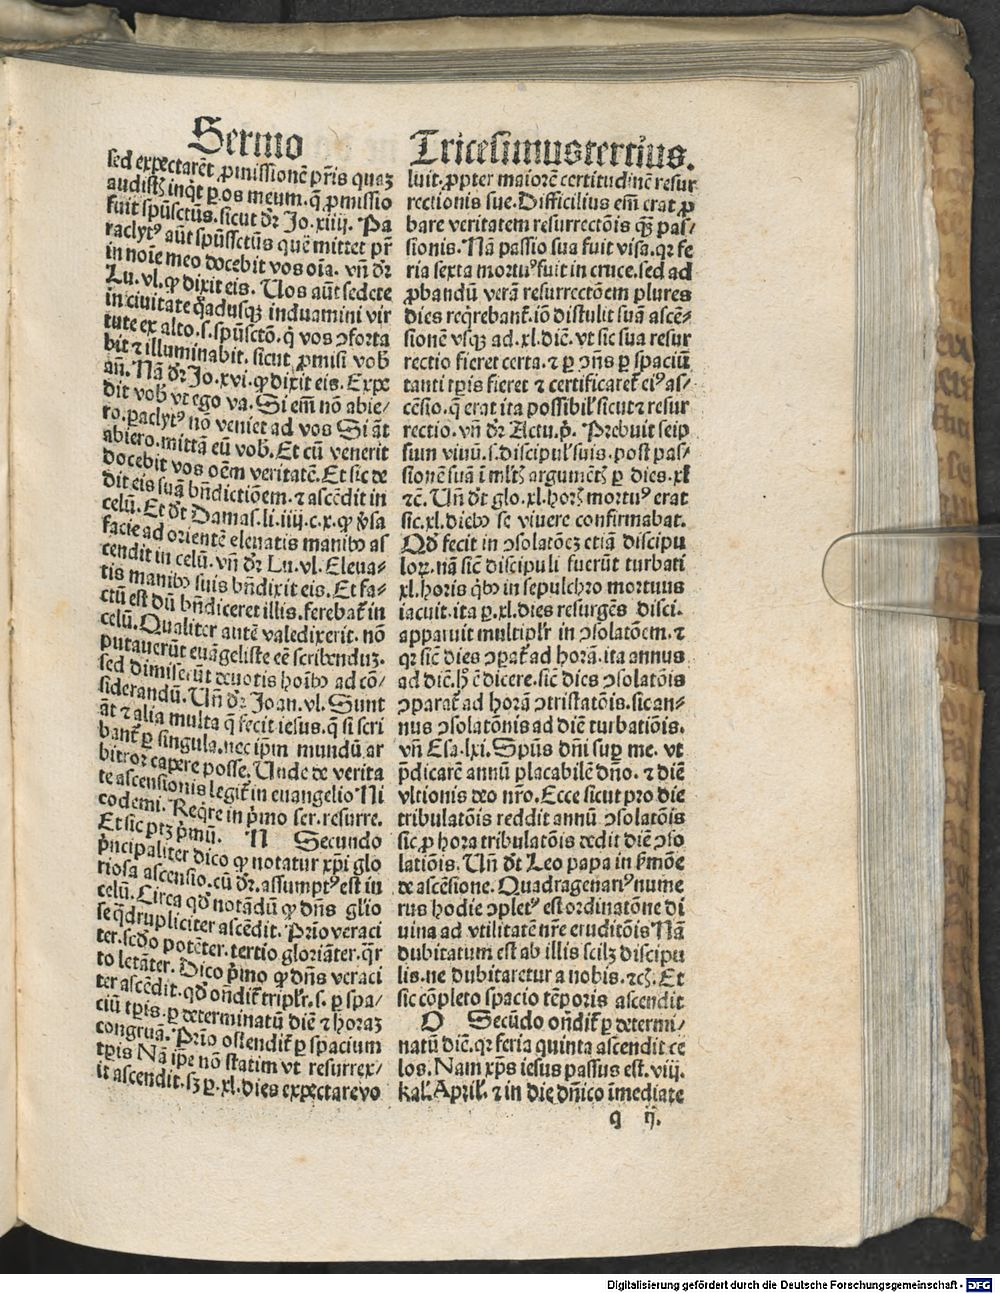 Sermo
sed expectarēt ꝓmissionē pr̄is quaꝫ
audistꝫ inq̇t ꝑ os meum. q̄ ꝓmissio
fuit spūsctūs. sicut dr̄ Jo. xiiij. Pa
raclytꝰ aūt spūsctūs quē mittet pr̄
in noīe meo docebit vos oīa. vn̄ dr̄
Lu. vl. ꝙ dixit eis. Uos aūt sedete
in ciuitate q̄adusqꝫ induamini vir
tute ex alto. s. spūsctō. q̇ vos ↄforta
bit ⁊ illuminabit. sicut ꝓmisi vob̄
an̄. Nā dr̄ Jo. xvi. ꝙ dixit eis. Expe
dit vob̄ vt ego va. Si em̄ nō abie/
ro. paclytꝰ nō veniet ad vos Si āt
abiero. mittā eū vob̄. Et cū venerit
docebit vos oēm veritatē. Et sic de
dit eis suā bn̄dictiōem. ⁊ ascēdit in
celū. Et dt̄ Damas. li. iiij. c. x. ꝙ v̓sa
facie ad orientē eleuatis manibꝰ as
cendit in celū. vn̄ dr̄ Lu. vl. Eleua/
tis manibꝰ suis bn̄dixit eis. Et fa/
ctū est dū bn̄diceret illis. ferebat̄ in
celū. Qualiter autē valedixerit. nō
putauerūt euāgeliste eē scribenduꝫ.
sed dimiserūt deuotis hoībꝰ ad cō/
siderandū. Un̄ dr̄ Joan. vl. Sunt
āt ⁊ alia multa q̄ fecit iesus. q̄ si scri
bant̄ ꝑ singula. nec ip̄m mundū ar
bitror capere posse. Unde de verita
te ascensionis legit̄ in euangelio Ni
codemi. Req̇re in p̓mo ser. resurre.
Et sic ptꝫ p̓mū. N Secundo
p̓ncipaliter dico ꝙ notatur xp̄i glo
riosa ascensio. cū dr̄. assumptꝰ est in
celū. Circa qd̄ notādū ꝙ dn̄s gl̓io
se q̄drupliciter ascēdit. Prīo veraci
ter. scd̄o potēter. tertio gloriāter. q̄r
to letāter. Dico p̓mo ꝙ dn̄s veraci
ter ascēdit. qd̄ on̄dit̄ tripl̓r. s. ꝑ spa/
ciū tp̄is. ꝑ determinatū diē ⁊ horaꝫ
congruā. Prīo ostendit̄ ꝑ spacium
tp̄is Nā ip̄e nō statim vt resurrex/
it ascendit. sꝫ ꝑ. xl. dies expectare vo
Tricesimustertius.
luit. ꝓpter maiorē certitudinē resur
rectionis sue. Difficilius em̄ erat ꝓ
bare veritatem resurrectōis qꝫ̄ pas/
sionis. Nā passio sua fuit visa. qꝛ fe
ria sexta mortuꝰ fuit in cruce. sed ad
ꝓbandū verā resurrectōem plures
dies req̇rebant̄. iō distulit suā ascē/
sionē vsqꝫ ad. xl. diē. vt sic sua resur
rectio fieret certa. ⁊ ꝑ ↄn̄s ꝑ spaciū
tanti tp̄is fieret ⁊ certificaret̄ eiꝰ as/
cēsio. q̄ erat ita possibil̓ sicut ⁊ resur
rectio. vn̄ dr̄ Actu. p̓. Prebuit seip
sum viuū. s. discipul̓ suis. post pas/
sionē suā ī ml̓tꝫ argumētꝫ ꝑ dies. xl
⁊c̄. Un̄ dt̄ glo. xl. horꝫ mortuꝰ erat
sic. xl. diebꝰ se viuere confirmabat.
Qd̄ fecit in ↄsolatōeꝫ etiā discipu
loꝝ. nā sic̄ discipuli fuerūt turbati
xl. horis q̇bꝰ in sepulchro mortuus
iacuit. ita ꝑ. xl. dies resurgēs disci.
apparuit multipl̓r in ↄsolatōem. ⁊
qꝛ sic̄ dies ↄpat̄ ad horā. ita annus
ad diē. hͦ ē dicere. sic̄ dies ↄsolatōis
ↄparat̄ ad horā ↄtristatōis. sic an/
nus ↄsolatōnis ad diē turbatiōis.
vn̄ Esa. lxi. Spūs dn̄i suꝑ me. vt
p̄dicarē annū placabilē dn̄o. ⁊ diē
vltionis deo nr̄o. Ecce sicut pro die
tribulatōis reddit annū ↄsolatōis
sic ꝓ hora tribulatōis dedit diē ↄso
latiōis. Un̄ dt̄ Leo papa in s̓mōe
de ascēsione. Quadragenariꝰ nume
rus hodie ↄpletꝰ est ordinatōne di
uina ad vtilitatē nr̄e eruditōis Nā
dubitatum est ab illis scilꝫ discipu
lis. ne dubitaretur a nobis. ⁊cꝫ. Et
sic cōpleto spacio tēporis ascendit
O Secūdo on̄dit̄ ꝑ determi/
natū diē. qꝛ feria quinta ascendit ce
los. Nam xp̄s iesus passus est. viij.
kal̓. April̓. ⁊ in die dn̄ico īmediate
q ij.
Digitalisierung gefördert durch die Deutsche Forschungsgemeinschaft - DFG